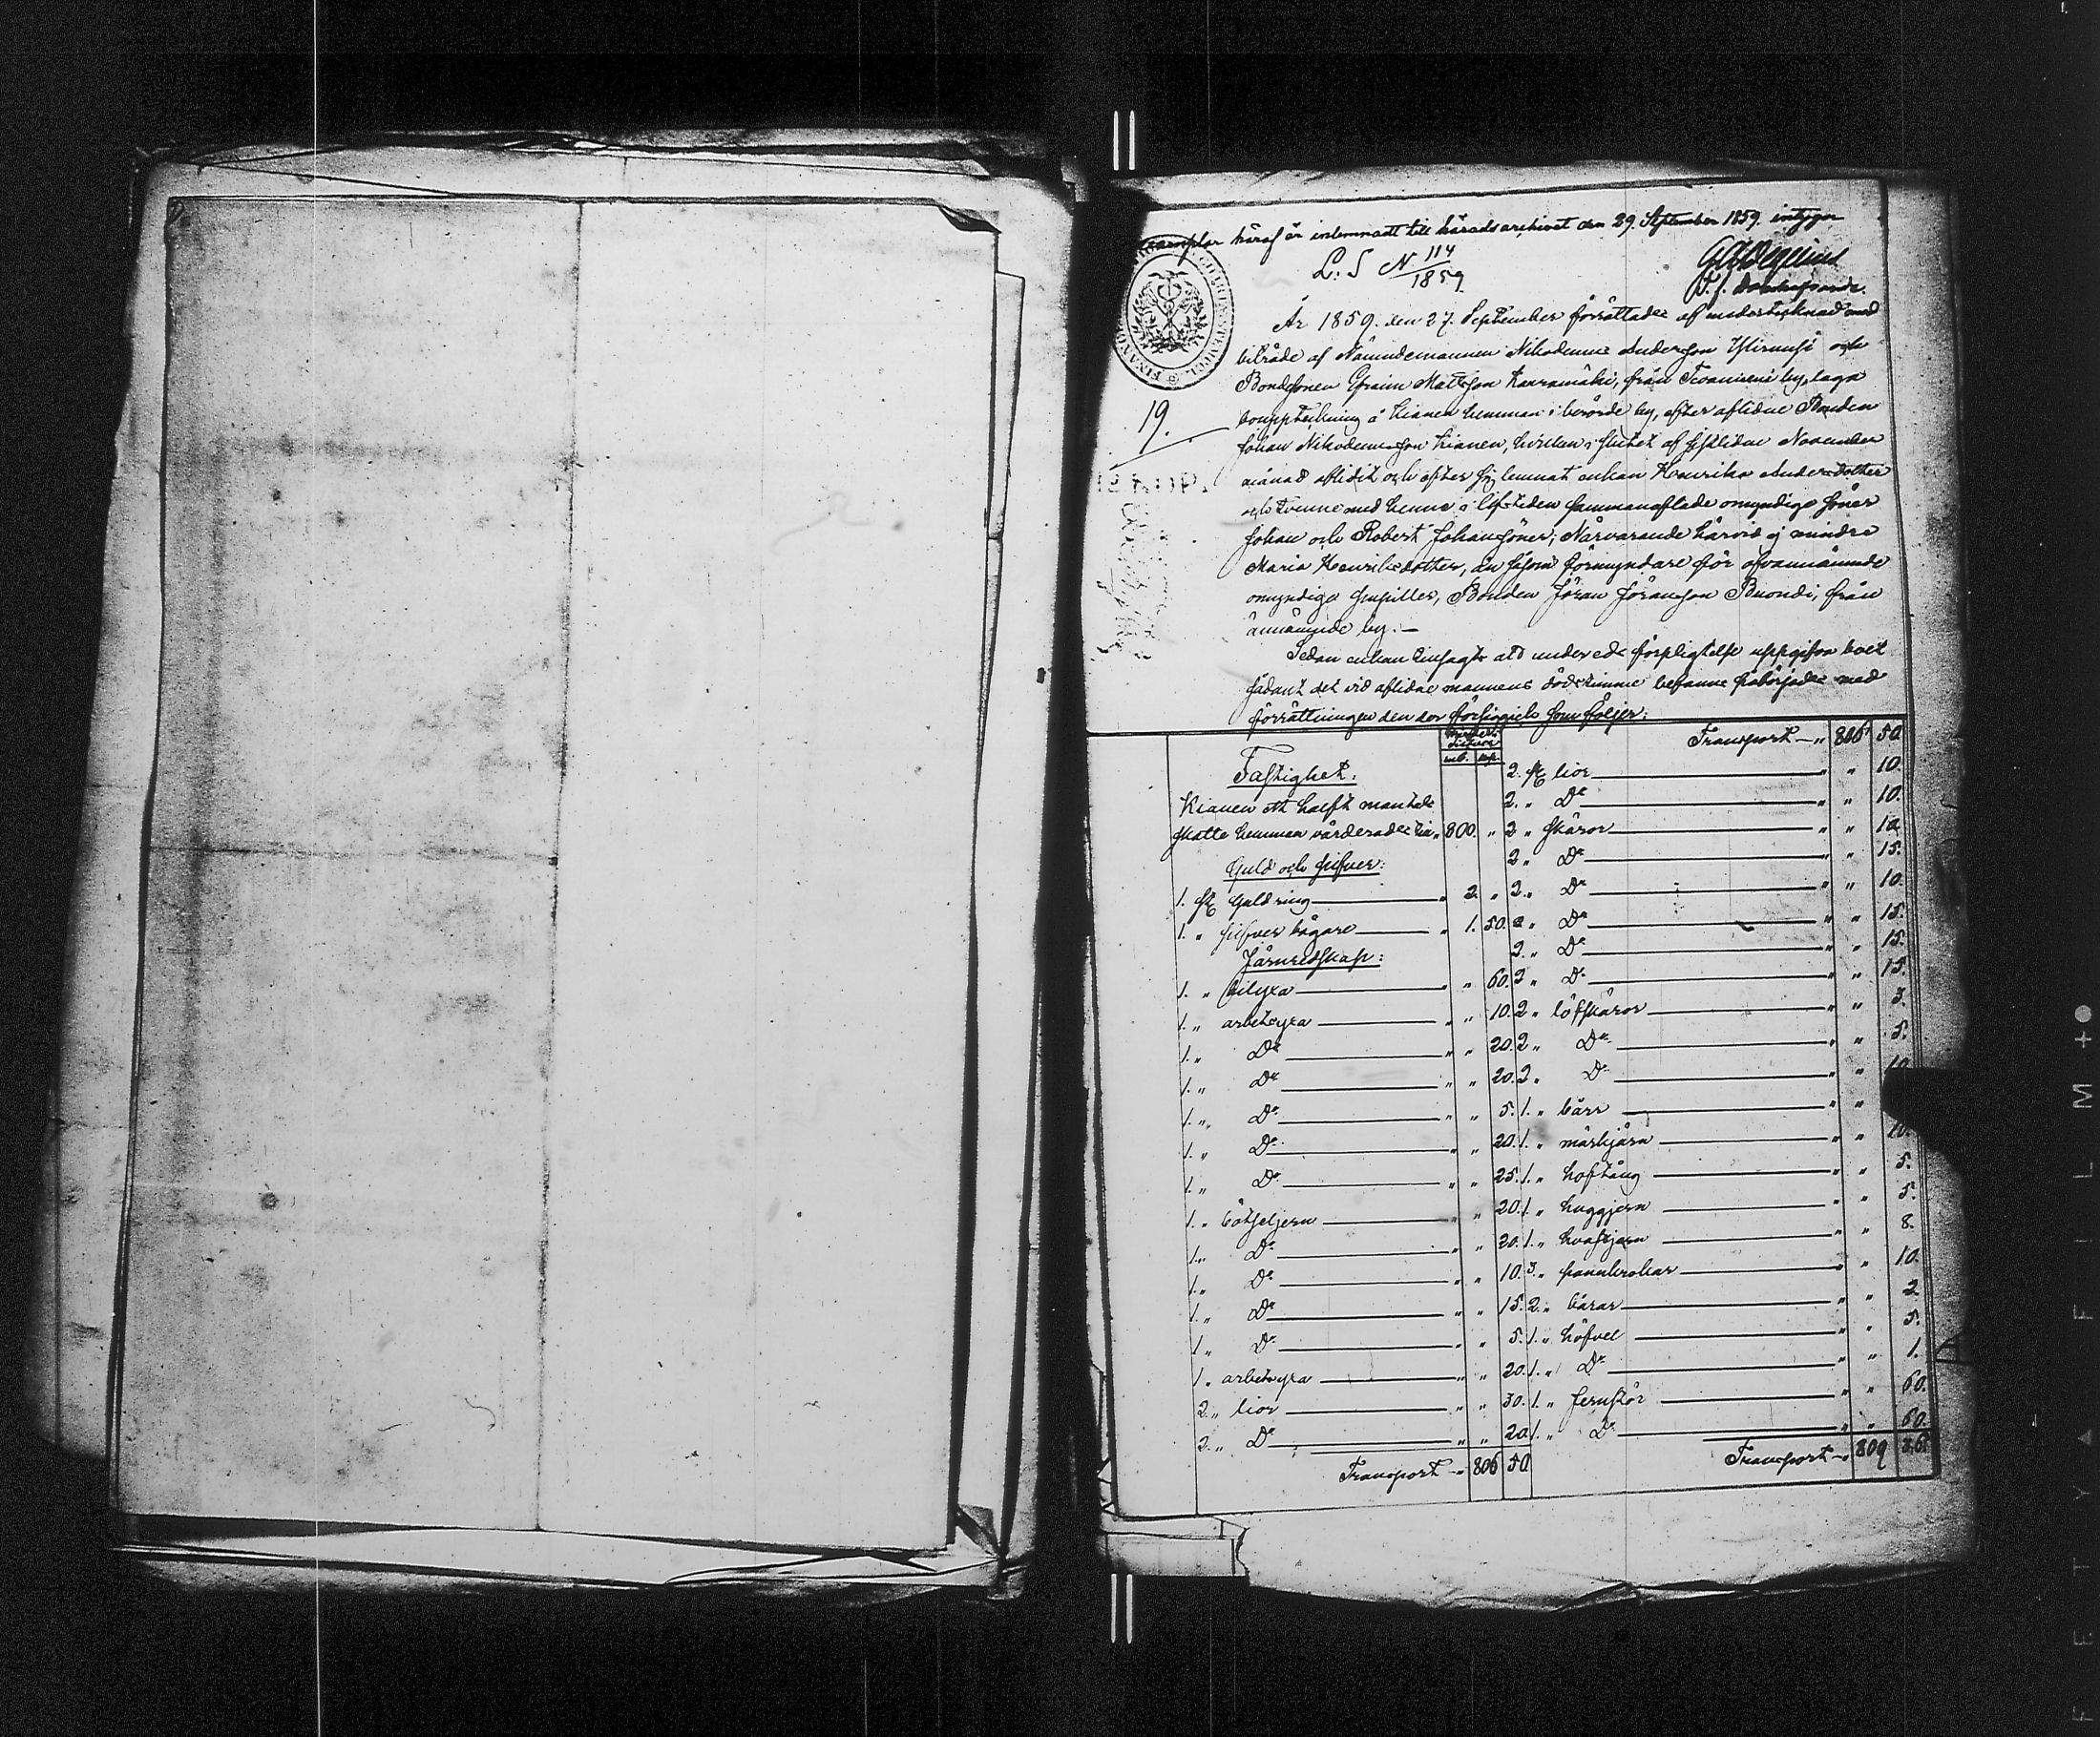 exemplar häraf är inlemnadt till häradsarchivet den 29. September 1859. intygar
L. S N. 114
1859.
T. f. Domhafvande.
19.
År 1859. den 27. September förrättades af undertecknad med
biträde af Nämndemannen Nikodemus Andersson och
Bondsonen Efraim Mattsson från by, laga
bouppteckning å Kianen hemman i berörde by, efter aflidne Bonden
Johan Nikodemusson Kianen, hvilken i slutet af sistlidne November
månad aflidit och efter sig lemnat enkan Henrika Andersdotter
och tvenne med henne i lifstiden sammanaflade omyndige söner
Johan och Robert Johanssöner; Närvarande härvid ej mindre
Maria Henriksdotter, än såsom förmyndare för ofvannämnde
omyndige pupiller, Bonden Jöran Jöransson Buondi, från
ännämnde by. —
Sedan enkan tillsagts att under eds förpligtelse uppgifva boet
sådant det vid aflidne mannens dödstimme befanns påbörjades med
förrättningen den der förhöggick som följer:
Silfver
rub. kop.
Fastighet:
Kianen ett halft mantals
skatte hemman värderades till " 800. "
Guld och silfver:
1. st. Guldring " 2. "
1. " silfver bägare " 1. 50.
Järnredskap:
1. " bilyxa " " 60.
1. " arbetsyxa " " 10.
1. " Do " " 20.
1. " Do " " 20.
1. " Do " " 5.
1. " Do " " 20.
1. " Do " " 25.
1. " " " 20.
1. " Do " " 20.
1. " Do " " 10.
1. " Do " " 15.
1 " Do " " 5.
1. " arbetsyxa " " 20.
2. " lior " " 30.
2. " Do " " 20
Transport — " 806 50
Transport — " 806 50
2. st. lior " " 10.
2. " Do " " 10.
2 " skäror " " 10.
2. " Do " " 15.
2. " Do " " 10.
2. " Do " " 15.
2. " Do " " 15.
2 " Do " " 15.
2 " löfskäror " " 3.
2 " Do " " 5.
2. " Do " " 10
1. " bärr " "
1. " märkjärn " " 10.
1. " hoftång " " 5.
1. " huggjern " " 5.
1. " " " 8.
3. " " " 10.
2. " bärar " " 2.
1. " höfvel " " 5.
1. " Do " " 1.
1. " jernstör " " 60.
1. " Do " " 60.
Transport — " 809 36.